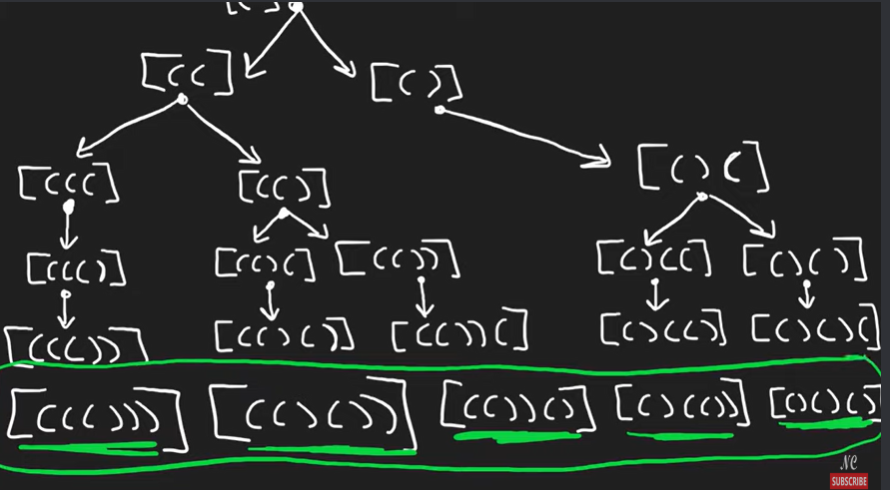 [(
[((] [()]
[(((] [(()] [()(]
[((()] [(()(] [(())] [()((] [()()]
[((())] [(()()] [(())(] [()(()] [()()(]
[((()))] [(()())] [(())()] [()(())] [()()()]
NC
SUBSCRIBE